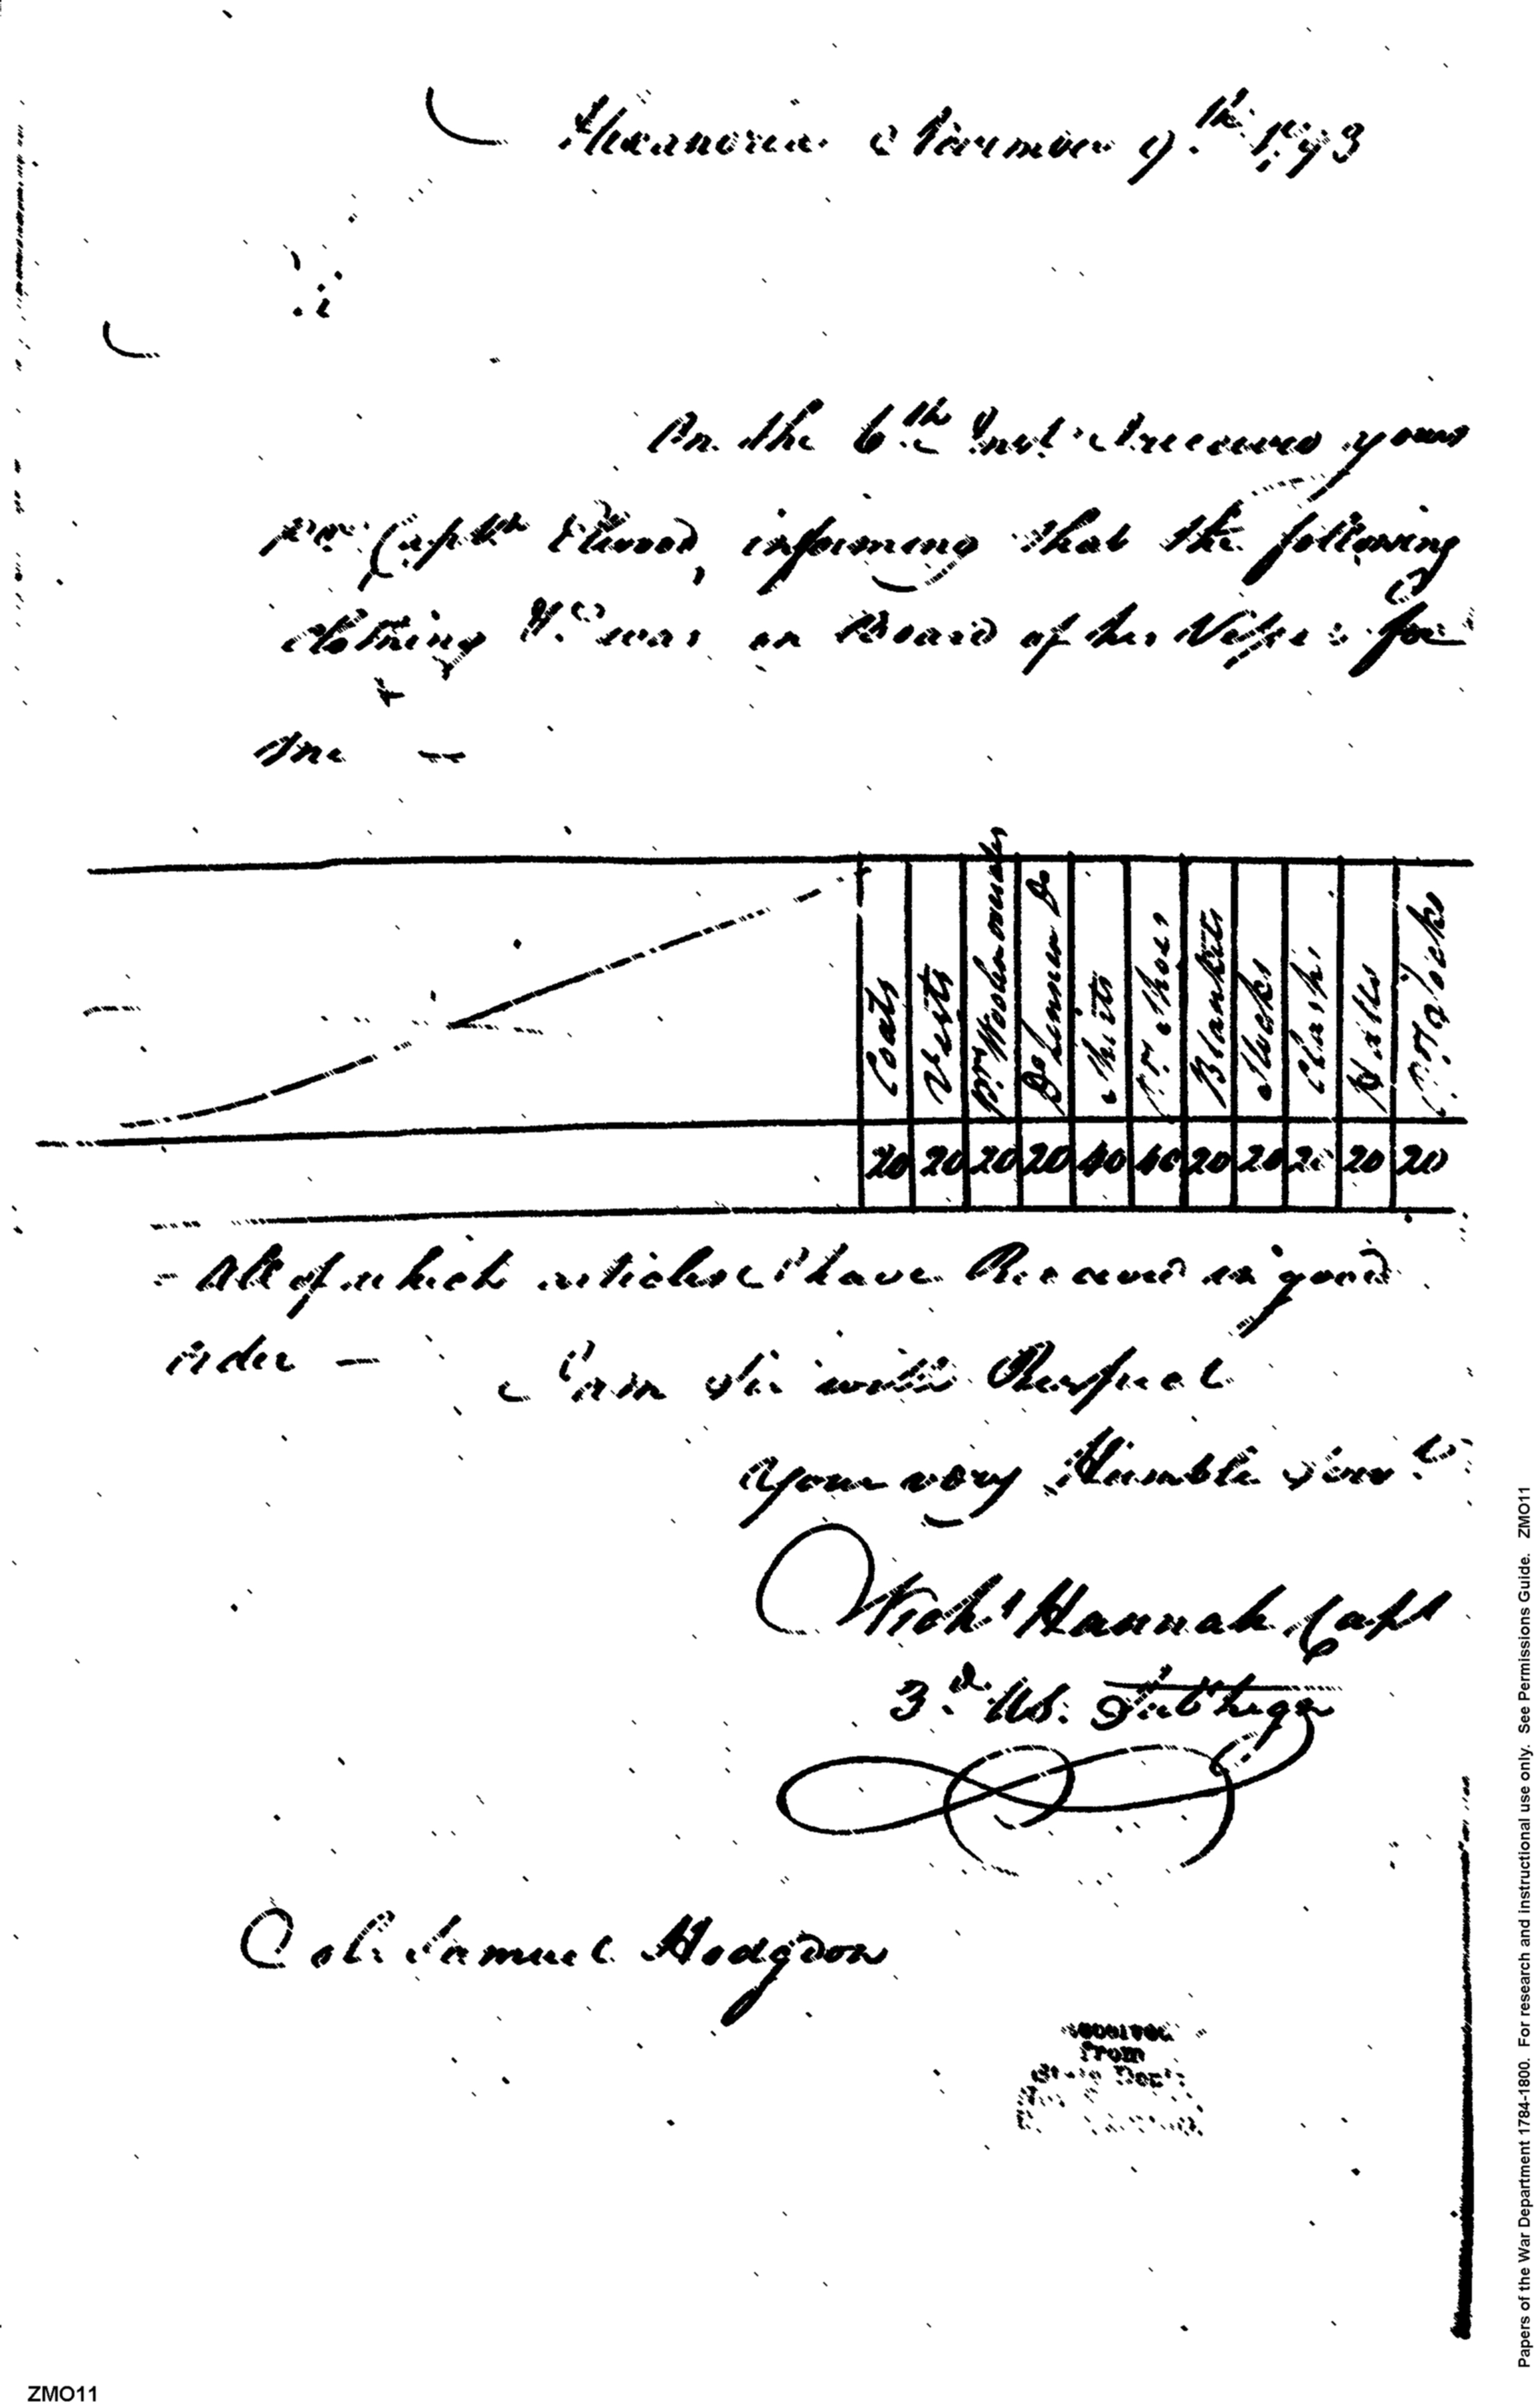 Alexandria November 9th. 1793
Sir
On the 6th. Inst. I received yours
pr. Captn Elwood, informing that the following
Clothing &c. was on Board of his Vessel for
me —
Coats Vests prs Woolen overalls Do Linnen Do Shirts pr. Shoes Blankets Stocks Clasps Hatts pr. Socks
20 20 20 20 40 40 20 20 20 20 20
- All of which articles I have Received in good
order —
I am Sir with Respect
Your very Humble Servt.
Nichs Hannah, Capt
3d. US. Sub Legn
Col. Samuel Hodgdon
Received
from
State Dept.
Papers of the War Department 1784-1800. For research and instructional use only. See Permissions Guide. ZMO11
ZMO11